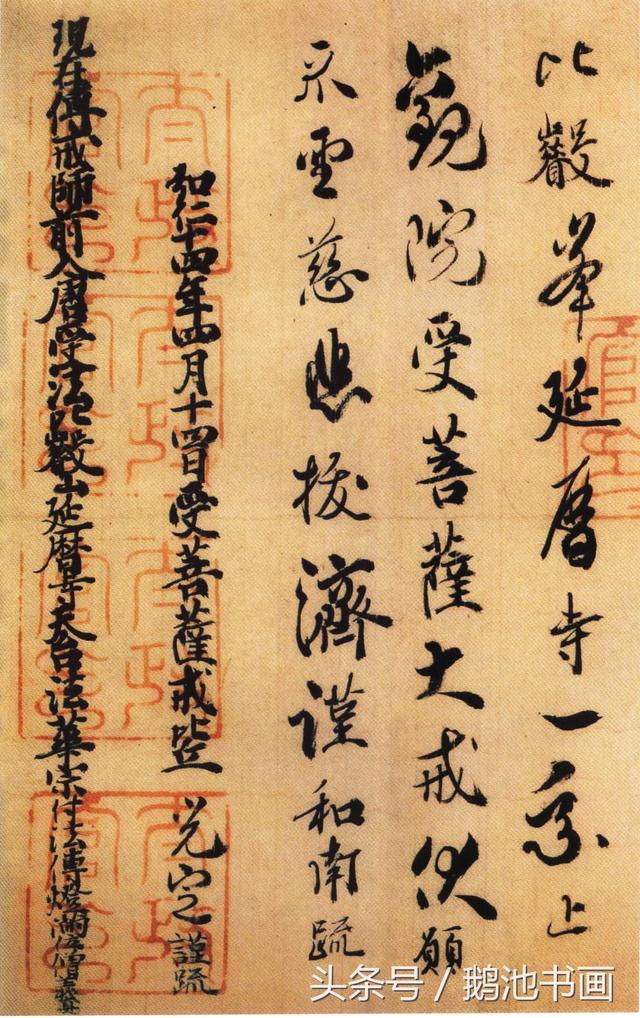 比叡峯延暦寺一乗止
觀院受菩薩大戒伏願
垂慈悲拔濟謹和南疏
弘仁十四年四月十四日受菩薩戒 光定謹疏
現在傳戒師前入唐受法叡山延暦寺天台法華宗付法傳燈滿位僧義真
头条号/鹅池书画